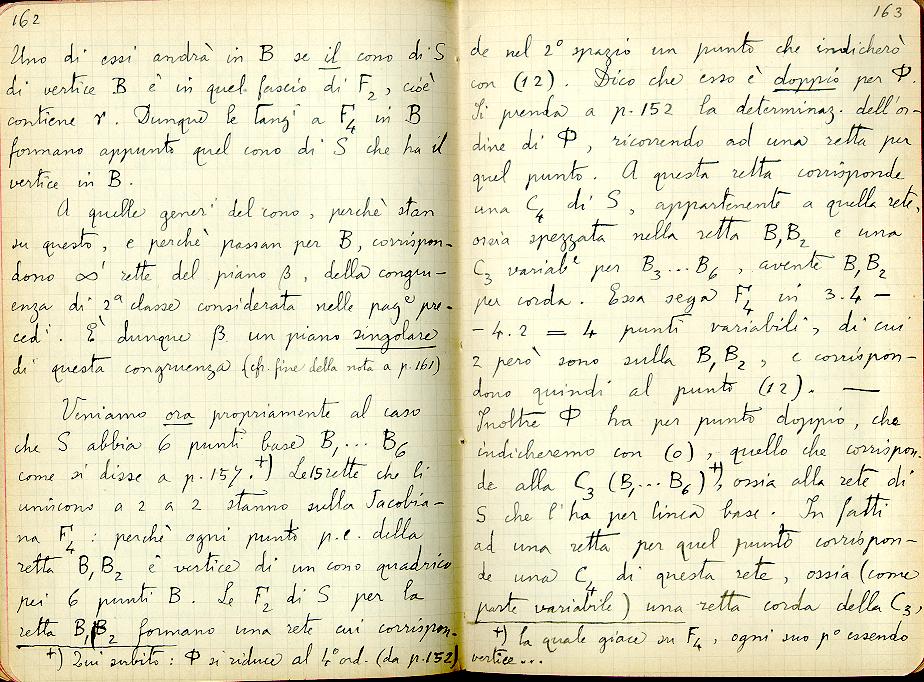 162
Uno di essi andrà in B se il cono di S
di vertice B è in quel fascio di F₂, cioè
contiene r. Dunque le tangⁱ a F₄ in B
formano appunto quel cono di S che ha il
vertice in B.
A quelle generⁱ del cono, perchè stan
su questo, e perchè passan per B, corrispon-
dono ∞¹ rette del piano β, della congru-
enza di 2ª classe considerata nelle pagᵉ pre-
cedⁱ. È dunque β un piano singolare
di questa congruenza (cfr. fine della nota a p. 161)
Veniamo ora propriamente al caso
che S abbia 6 punti base B₁ ... B₆
come si disse a p. 157. +) Le 15 rette che li
uniscono a 2 a 2 stanno sulla Jacobia-
na F₄ : perchè ogni punto p.e. della
retta B₁B₂ è vertice di un cono quadrico
pei 6 punti B. Le F₂ di S per la
retta B₁B₂ formano una rete cui corrispon-
+) Qui subito: Φ si riduce al 4° ord. (da p. 152)
163
de nel 2° spazio un punto che indicherò
con (12). Dico che esso è doppio per Φ.
Si prenda a p. 152 la determinaz. dell'or-
dine di Φ, ricorrendo ad una retta per
quel punto. A questa retta corrisponde
una C₄ di S, appartenente a quella rete,
ossia spezzata nella retta B₁B₂ e una
C₃ variabᵉ per B₃ ... B₆, avente B₁B₂
per corda. Essa sega F₄ in 3.4 -
- 4.2 = 4 punti variabili, di cui
2 però sono sulla B₁B₂, e corrispon-
dono quindi al punto (12). —
Inoltre Φ ha per punto doppio, che
indicheremo con (0), quello che corrispon-
de alla C₃ (B₁ ... B₆) +), ossia alla rete di
S che l'ha per linea base. In fatti
ad una retta per quel punto corrispon-
de una C₄ di questa rete, ossia (come
parte variabile) una retta corda della C₃,
+) la quale giace su F₄, ogni suo pº essendo
vertice ...